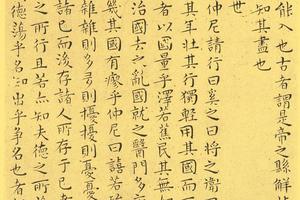 能入也古者謂是帝之縣解
知其盡也
世
仲尼請行曰奚之曰將之衛曰
其年壯其行獨輕用其國而
者以國量乎澤若蕉民其無
治國去之亂國就之醫門多
幾其國有瘳乎仲尼曰譆若
雜雜則多多則擾擾則憂憂
諸己而後存諸人所存于己者
之所行且若亦知夫德之所
德蕩乎名知出乎爭名也者